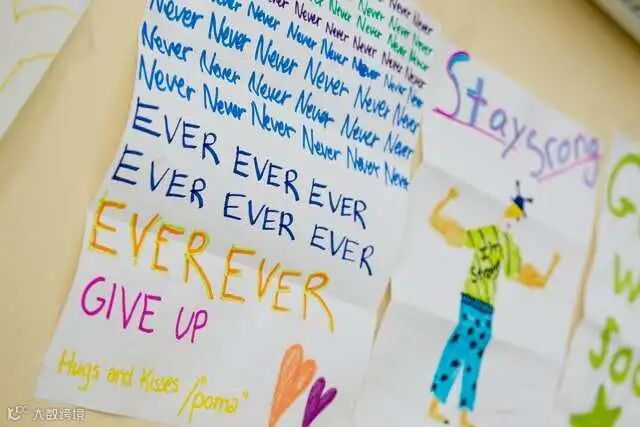 Never Never Never Never
Never Never Never Never
Never Never Never Never Never Never
Never Never Never Never Never Never
Never Never Never Never Never Never
Never Never Never Never Never Never
EVER EVER EVER
EVER EVER EVER
EVER EVER
GIVE UP
Hugs and Kisses /"poma"
Stay srong
I'm
Strong
G
w
soo
大数跨境